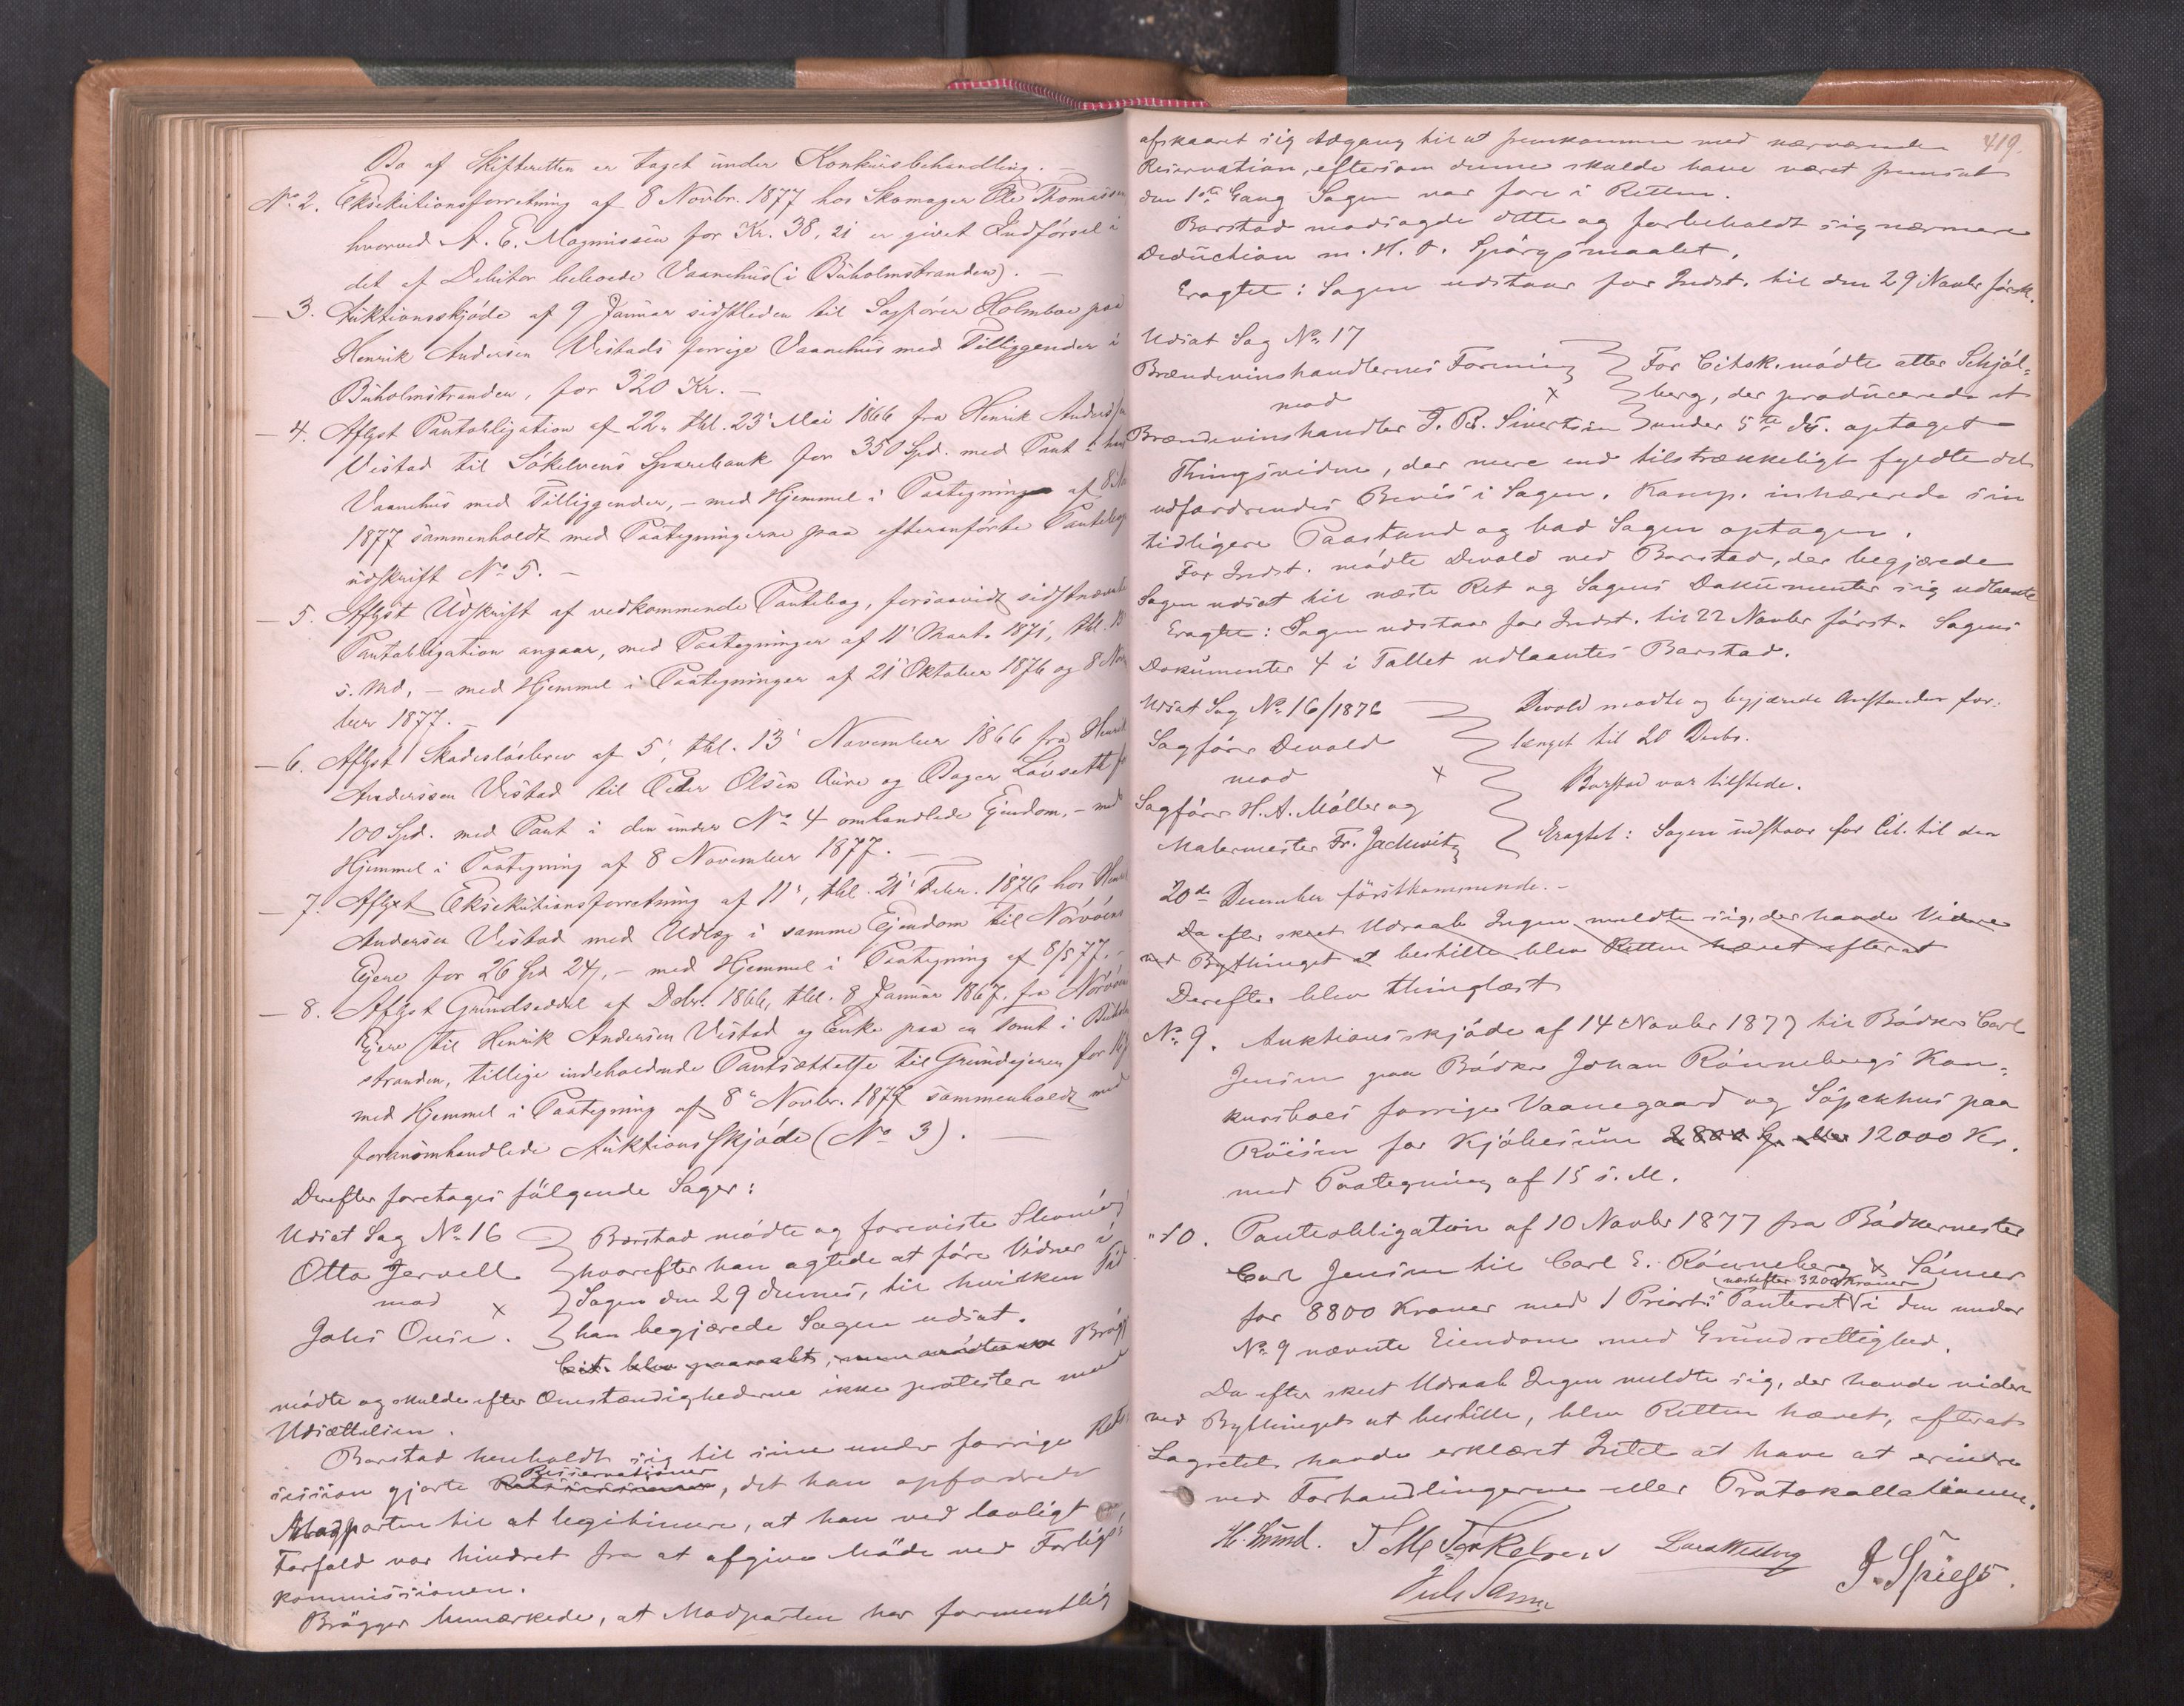 Bo af Skifteretten er taget under Konkursbehandling. —
No 2. Eksekutionsforretning af 8 Novbr. 1877 hos Skomager Ole Thomassen
hvorved A. E. Magnussen for Kr. 38,21 er givet Indførsel i
det af Debitor beboede Vaanehus (i Buholmstranden). —
— 3. Auktionsskjøde af 9 Januar sidstleden til Sagfører Holmboe paa
Henrik Andersen Vestads forrige Vaanehus med Tilliggender i
Buholmstranden, for 320 Kr. —
— 4. Aflyst Pantobligation af 22, thl. 23 Mai 1866 fra Henrik Anderssen
Vestad til Søkelvens Sparebank for 350 Spd. med Pant i hans
Vaanehus med Tilliggender, — med Hjemmel i Paategning af 8
1877 sammenholdt med Paategningerne paa efteranførte Pantebogs
udskrift No 5. —
— 5. Aflyst Udskrift af vedkommende Pantebog, forsaavidt sidstnævnte
Pantobligation angaar, med Paategninger af 11 Mart. 1871, thl. 13
s. Md, — med Hjemmel i Paategninger af 21 Oktober 1876 og 8 Novem
ber 1877. —
— 6. Aflyst Skadesløsbrev af 5, thl. 13 November 1866 fra Henrik
Anderssen Vestad til Peder Olsen Aure og Bager Løvseth for
100 Spd. med Pant i den under No 4 omhandlede Ejendom, — med
Hjemmel i Paategning af 8 November 1877. —
— 7. Aflyst Eksekutionsforretning af 11, thl. 21 Febr. 1876 hos Henrik
Andersen Vestad med Udlæg i samme Ejendom til Nørvøens
Ejere for 26 Spd 24, — med Hjemmel i Paategning af 8/5 77. —
— 8. Aflyst Grundseddel af Debr. 1866, thl. 8 Januar 1867, fra Nørvøens
Ejere til Henrik Andersen Vestad og Enke paa en Tomt i Buholm
stranden, tillige indeholdende Pantsættelse til Grundejeren for
med Hjemmel i Paategning af 8 Novbr. 1877 sammenholdt med
foranomhandlede Auktionsskjøde (No 3). —
Derefter foretages følgende Sager:
Udsat Sag No 16
Otto Jervell
mod x
Johs Ouse.
Barstad mødte og foreviste Stevning
hvorefter han agtede at føre Vidner i
Sagen den 29 dennes, til hvilken Tid
han begjærede Sagen udsat.
Cit. blev paaraabt, Brøgger
mødte og skulde efter Omstændighederne ikke protestere mod
Udsættelsen.
Barstad henholdt sig til sine under forrige Rets
session gjorte Reservationer, det han opfordrede
Modparten til at legitimere, at han ved lovligt
Forfald var hindret fra at afgive Møde ved Forligs
kommissionen.
Brøgger bemærkede, at Modparten har formentlig
419.
afskaaret sig Adgang til at fremkomme med nærværende
Reservation, eftersom denne skulde have været fremsat
den 1ste Gang Sagen var fore i Retten.
Barstad modsagde dette og forbeholdt sig nærmere
Deduction m. H. t. Spørgsmaalet.
Eragtet: Sagen udstaar for Indst. til den 29 Novbr førstk.
Udsat Sag No 17
Brændevinshandlernes Forening
mod x
Brændevinshandler T. B. Sivertsen
For Citsk. mødte atter Schjøl-
berg, der producerede et
under 5te ds. optaget
Thingsvidne, der mere end tilstrækkeligt fyldte det
udfordrendes Bevis i Sagen. Komp. inhærerede sin
tidligere Paastand og bad Sagen optagen.
For Indst. mødte Devold ved Barstad, der begjærede
Sagen udsat til næste Ret og Sagens Dokumenter sig udlaante
Eragtet: Sagen udstaar for Indst. til 22 Novbr først. Sagens
Dokumenter 4 i Tallet udlaantes Barstad.
Udsat Sag No 16/1876
Sagfører Devold
mod x
Sagfører H. A. Møller og
Malermester Fr. Jachwitz
Devold mødte og begjærede Anstanden for-
længet til 20 Decbr.
Barstad var tilstede.
Eragtet: Sagen udstaar for Cit. til den
20de December førstkommende. —
Da efter skeet Udraab Ingen meldte sig, der havde Videre
ved Bythinget at bestille, blev Retten hævet efterat
Derefter blev thinglæst
No 9. Auktionsskjøde af 14 Novbr 1877 til Bødker Carl
Jensen paa Bødker Johan Rønnebergs Kon-
kursboes forrige Vaanegaard og Søpakhus paa
Røisen for Kjøbesum 2800 Sp. eller 12000 Kr.
med Paategning af 15 s. M.
" 10. Panteobligation af 10 Novbr 1877 fra Bødkermester
Carl Jensen til Carl E. Rønneberg & Sønner
for 8800 Kroner med 1 Priorts Panteret (næstefter 3200 Kroner) i den under
No 9 nævnte Eiendom med Grundrettighed.
Da efter skeet Udraab Ingen meldte sig, der havde videre
ved Bythinget at bestille, blev Retten hævet, efterat
Lagrettet havde erklæret Intet at have at erindre
ved Forhandlingerne eller Protokollationen.
H. Lund. T M Torkelsen J. Spiess.